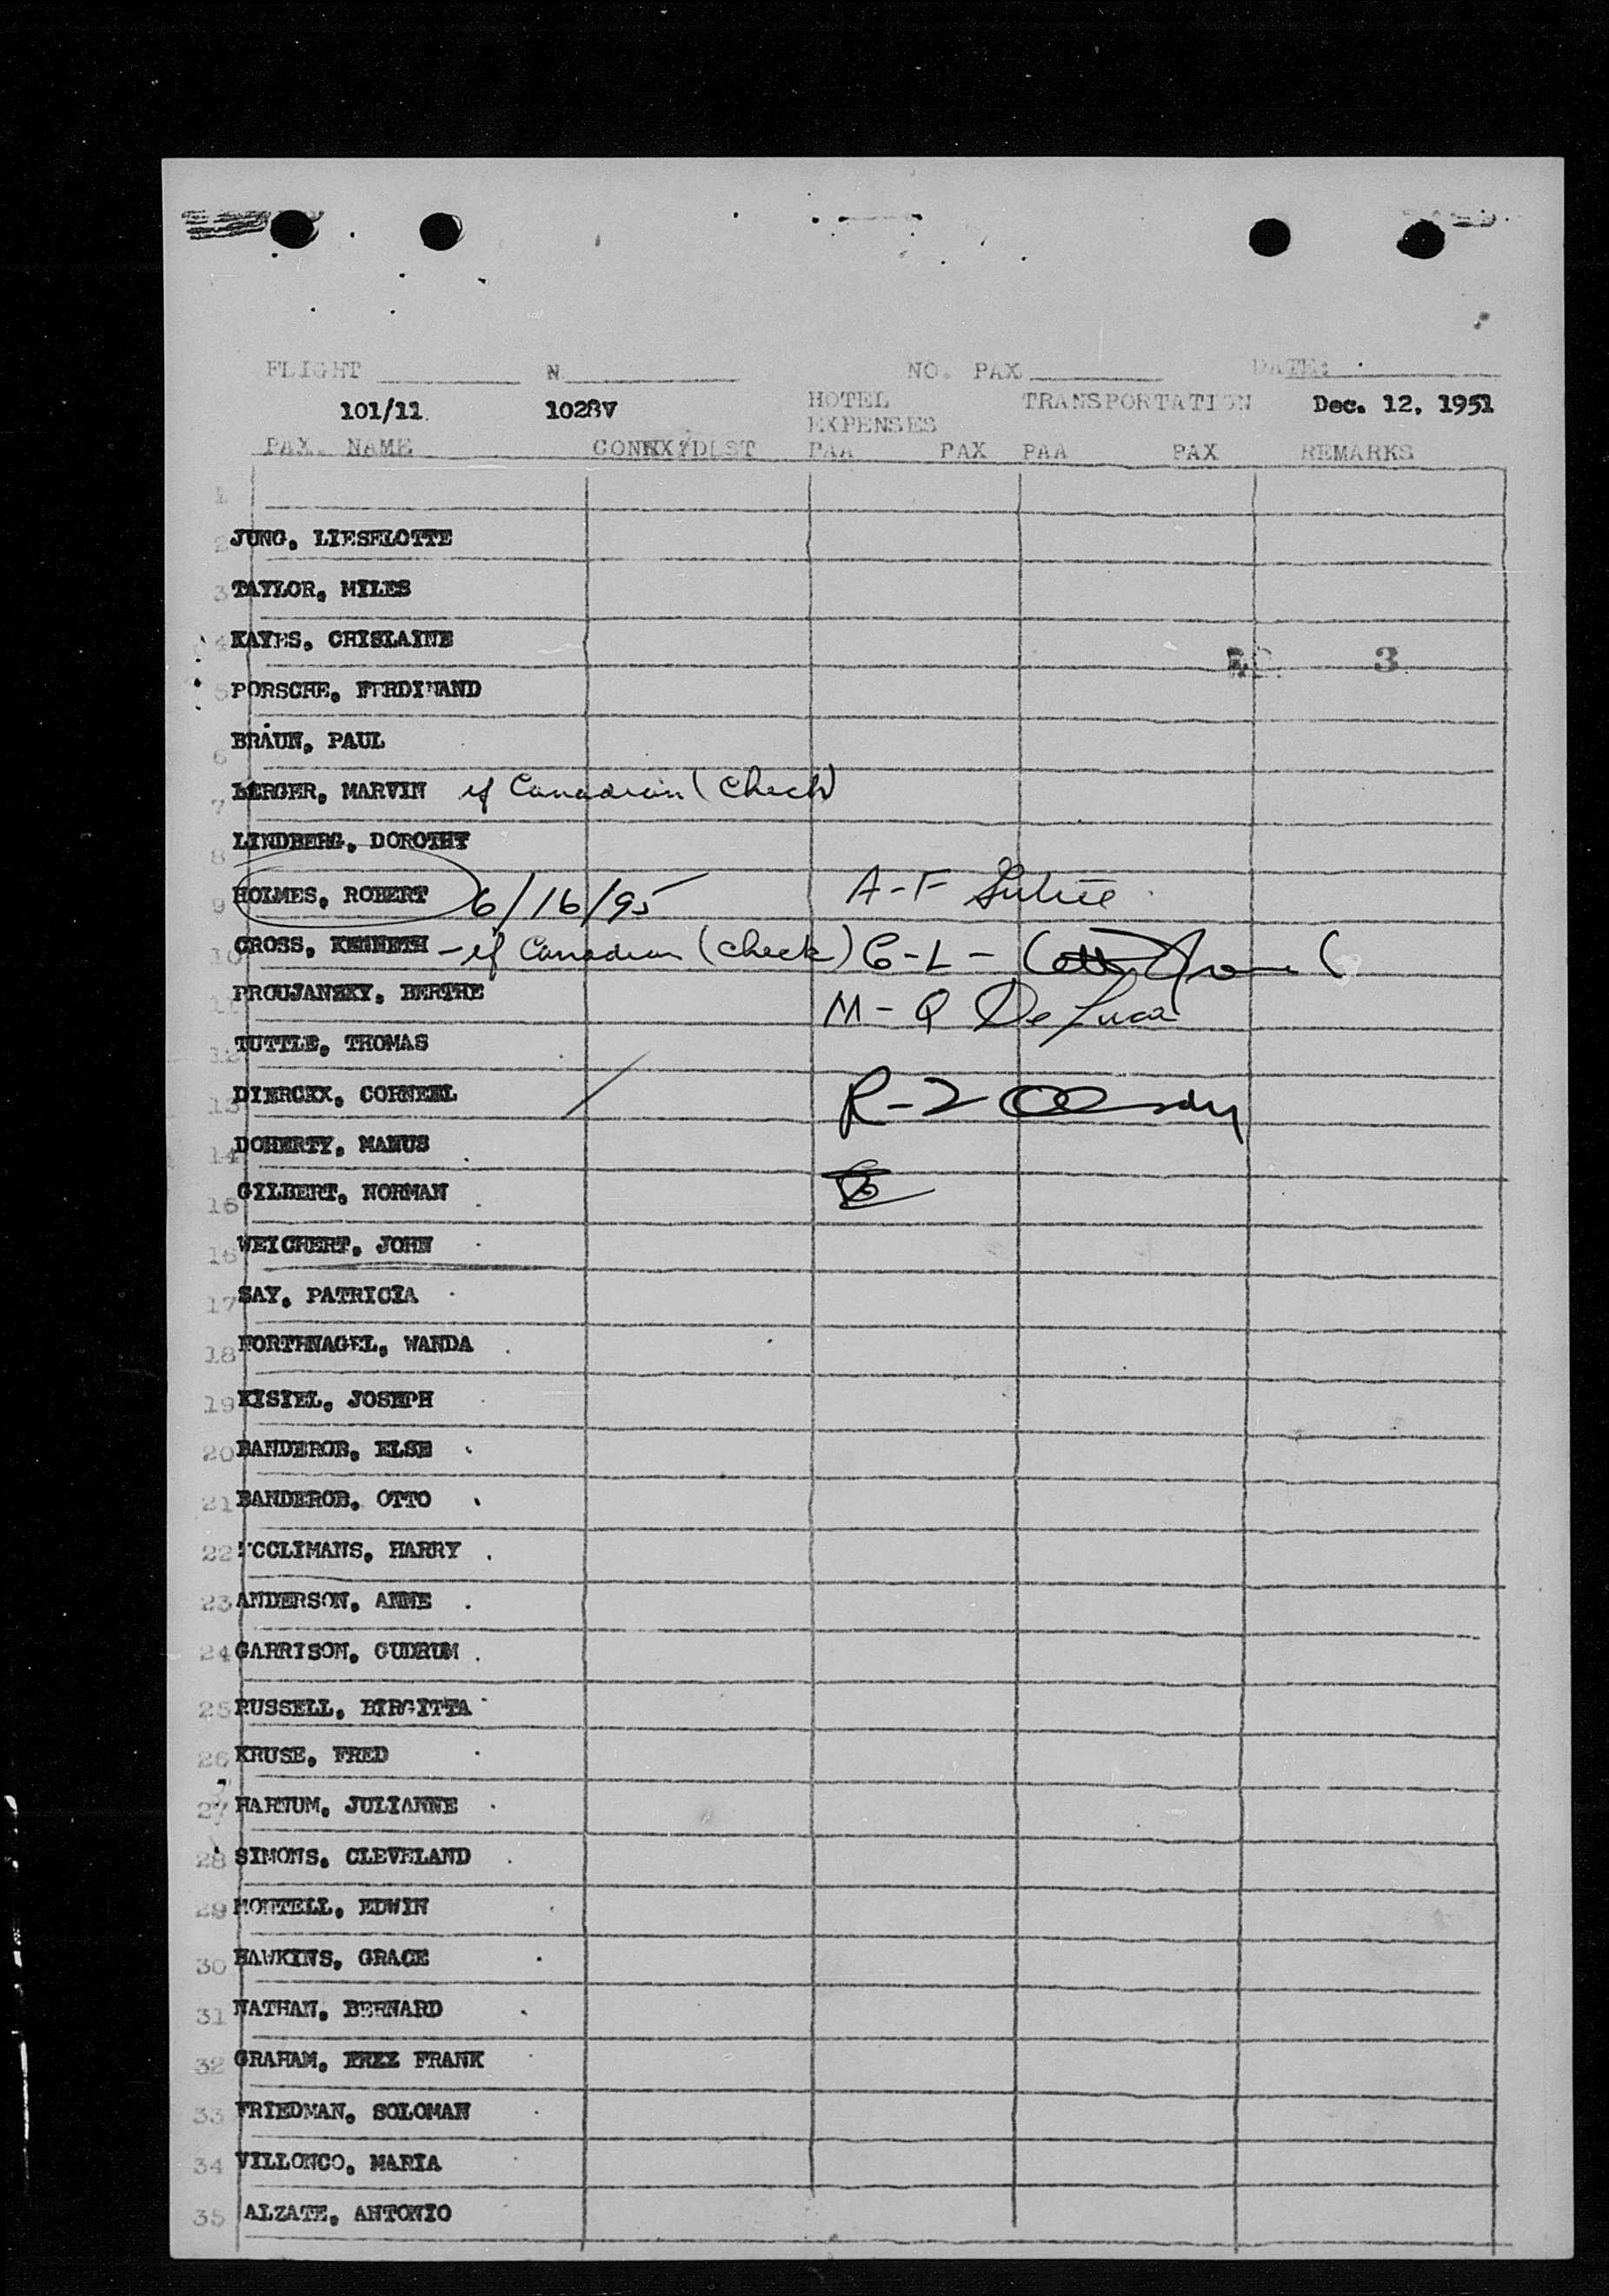 FLIGHT N NO. PAX DATE:
101/11 1028V HOTEL TRANSPORTATION Dec. 12, 1951
EXPENSES
PAX. NAME CONNX/DEST PAA PAX PAA PAX REMARKS
1
2 JUNG, LIESELOTTE
3 TAYLOR, MILES
4 KAYES, CHISLAINE
3
5 PORSCHE, FERDINAND
6 BRAUN, PAUL
7 BERGER, MARVIN if Canadian (Check)
8 LINDBERG, DOROTHY
9 HOLMES, ROBERT 6/16/95 A-F
10 GROSS, KENNETH - if Canadian (check) C-L -
11 PROUJANSKY, BERTHE M-Q De Luca
12 TUTTLE, THOMAS
13 DIERCKX, CORNEEL R-Z
14 DOHERTY, MANUS
15 GILBERT, NORMAN
16 WEICHERT, JOHN
17 SAY, PATRICIA
18 NORTHNAGEL, WANDA
19 KISIEL, JOSEPH
20 BANDEROB, ELSE
21 BANDEROB, OTTO
22 MCCLIMANS, HARRY
23 ANDERSON, ANNE
24 GARRISON, GUDRUM
25 RUSSELL, BIRGITTA
26 KRUSE, FRED
27 HARTUM, JULIANNE
28 SIMONS, CLEVELAND
29 MONTELL, EDWIN
30 HAWKINS, GRACE
31 NATHAN, BERNARD
32 GRAHAM, FRANK
33 FRIEDMAN, SOLOMAN
34 VILLONCO, MARIA
35 ALZATE, ANTONIO